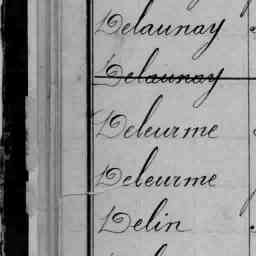 Delaunay
Delaunay
Deleurme
Deleurme
Delin